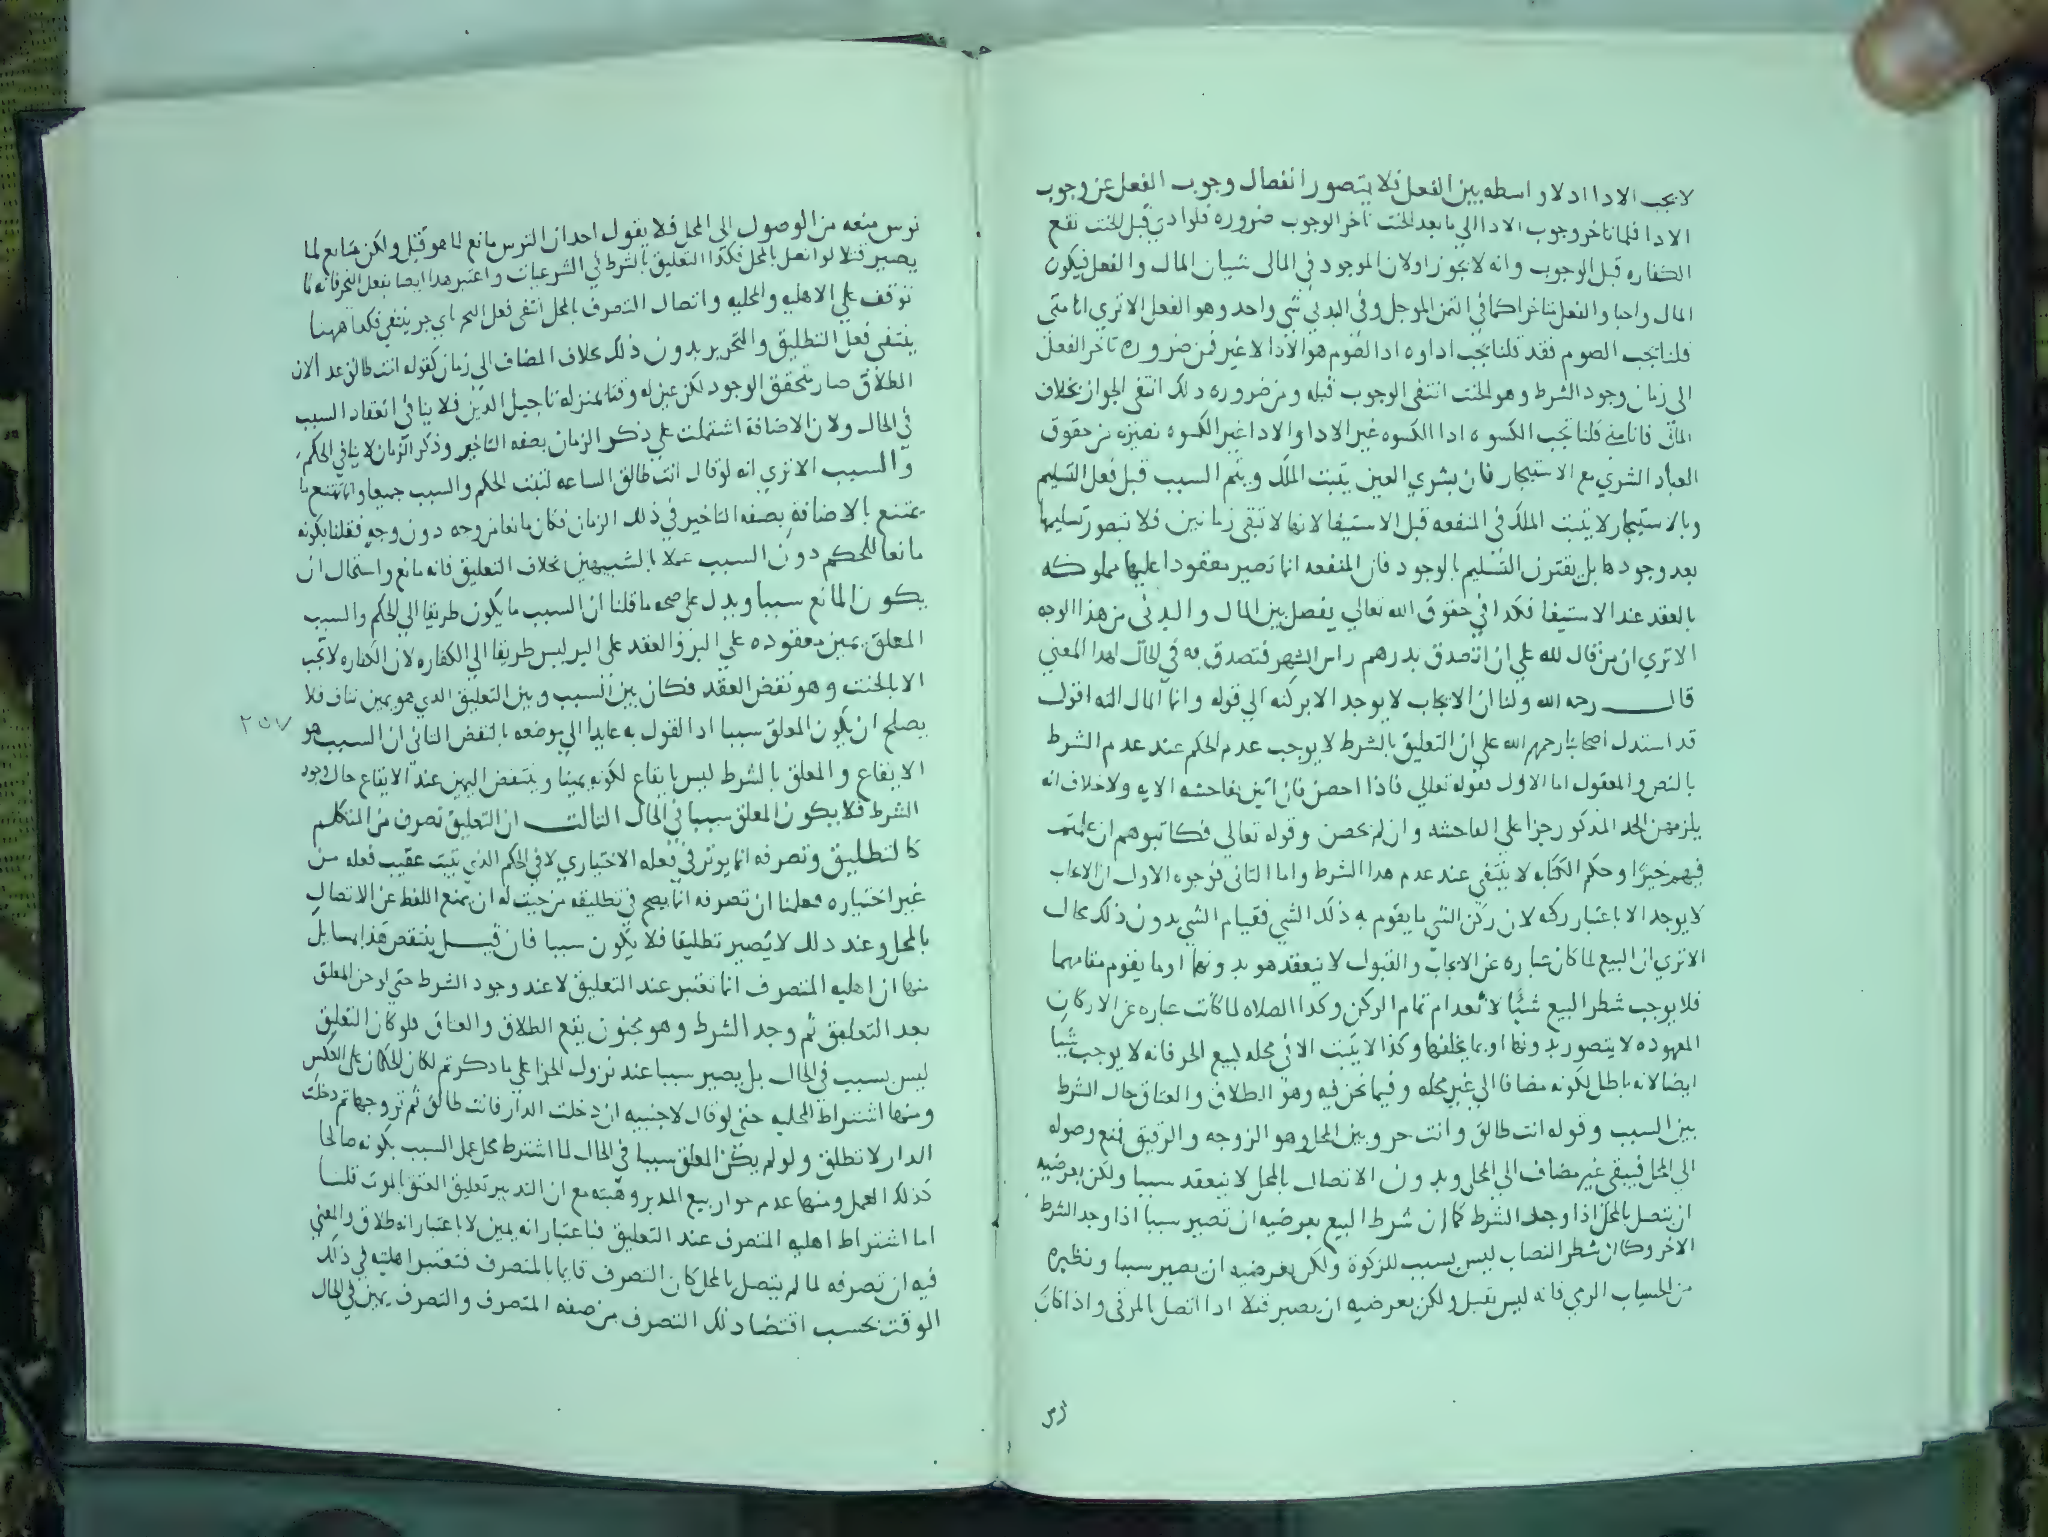 لا يجب الادا اذ لا واسطه بين الفعل فلا يتصور انفصال وجوب الفعل عن وجوب
الادا فلما تاخر وجوب الادا الى ما بعد الحنث تاخر الوجوب ضروره فلو ادى قبل الحنث تقع
الكفاره قبل الوجوب وانه لا يجوز اولان الموجود في المالى شيان المال والفعل فيكون
المال واجبا والفعل متاخرا كما في الثمن الموجل وفي البدني شي واحد وهو الفعل الا تري انا متى
قلنا يجب الصوم فقد قلنا يجب اداوه اذ الصوم هو الادا لا غير فمن ضروره تاخر الفعل
الى زمان وجود الشرط وهو الحنث انتفى الوجوب قبله ومن ضروره ذلك انتفى الجواز بخلاف
المالى فانا متى قلنا تجب الكسوه ادا الكسوه غير الادا والادا غير الكسوه نصيره من حقوق
العباد الشري مع الاستيجار فان بشري العين يثبت الملك ويتم السبب قبل فعل التسليم
وبالاستيجار لا يثبت الملك في المنفعه قبل الاستيفا لانها لا تبقى زمانين فلا تتصور تسليمها
بعد وجودها بل يقترن التسليم بالوجود فان المنفعه انما تصير معقودا عليها مملوكه
بالعقد عند الاستيفا فكذا في حقوق الله تعالى يفصل بين المال والبدنى من هذا الوجه
الا تري ان من قال لله علي ان اتصدق بدرهم راس الشهر فتصدق به في الحال لهذا المعني
قال رحمه الله ولنا ان الايجاب لا يوجد الا بركنه الى قوله وانما المال الته اقول
قد استدل اصحابنا رحمهم الله على ان التعليق بالشرط لا يوجب عدم الحكم عند عدم الشرط
بالنص والمعقول اما الاول فقوله تعالى فاذا احصن فان اتين بفاحشه الايه ولا خلاف انه
يلزمهن الحد المذكور رجزا على الفاحشه وان لم يحصن وقوله تعالى فكاتبوهم ان علمتم
فيهم خيرا وحكم الكتابه لا ينتفي عند عدم هذا الشرط واما الثانى فوجوه الاول ان الايجاب
لا يوجد الا باعتبار ركنه لان ركن الشي ما يقوم به ذلك الشي فقيام الشي بدون ذلك محال
الا تري ان البيع لما كان عباره عن الايجاب والقبول لا ينعقد هو بدونهما او ما يقوم مقامهما
فلا يوجب شطر البيع شيا لانعدام تمام الركن وكذا الصلاه لما كانت عباره عن الاركان
المعهوده لا يتصور بدونها او بما يخلفها وكذا لا يثبت الا في محله لبيع الحر فانه لا يوجب شيا
ايضا لانه باطل لكونه مضافا الي غير محله وفيما نحن فيه وهو الطلاق والعتاق حال الشرط
بين السبب وقوله انت طالق وانت حر وبين المحل وهو الزوجه والرقيق فمنع وصوله
الى المحل فيبقى غير مضاف الى المحل وبدون الاتصال بالمحل لا ينعقد سببا ولكن بعرضيه
ان يتصل بالمحل اذا وجد الشرط كما ان شرط البيع بعرضيه ان تصير سببا اذا وجد الشرط
الاخر وكما ان شطر النصاب ليس بسبب للزكوة ولكن بعرضيه ان يصير سببا ونظيره
من الحسيات الرمي فانه ليس بقبل ولكن بعرضيه ان يصير قتلا اذا اتصل بالمرفى واذا كان
ترس
ترس منعه من الوصول الى المحل فلا يقول احد ان الترس مانع لما هو قتل ولكن مانع لما
يصير قتلا لو اتصل بالمحل فكذا التعليق بالشرط في الشرعيات واعتبر هذا ايضا بفعل النحر فانه لما
توقف علي الاهليه والمحليه واتصال التصرف بالمحل انتفى فعل النحر اي جز ينتفي فكذا ههنا
ينتفى فعل التطليق والتحرير بدون ذلك بخلاف المضاف الى زمان كقوله انت طالق غد الان
الطلاق صار متحقق الوجود لكن عين له وقتا بمنزله تاجيل الدين فلا ينافى انعقاد السبب
في الحال ولان الاضافة اشتملت علي ذكر الزمان بصفه التاخير وذكر الزمان لا ينافي الحكم
والسبب الا تري انه لو قال انت طالق الساعه لثبت الحكم والسبب جميعا وانما تمتنع ما
يمتنع بالاضافه بصفه التاخير في ذلك الزمان فكان مانعا من وجه دون وجه فقلنا بكونه
مانعا للحكم دون السبب عملا بالشبيهين بخلاف التعليق فانه مانع واستحال ان
يكون المانع سببا ويدل على صحه ما قلنا ان السبب ما يكون طريقا الي الحكم والسبب
المعلق يمين معقوده علي البر والعقد على البر ليس طريقا الي الكفاره لان الكفاره لا تجب
الا بالحنث وهو نقض العقد فكان بين السبب وبين التعليق الذي هو يمين تناف فلا
يصلح ان يكون المعلق سببا اذ القول به عايدا الي موضعه بالنقض الثانى ان السبب هو
٢٥٧
الايقاع والمعلق بالشرط ليس بايقاع لكونه يمينا وينتقض اليمين عند الايقاع حال وجود
الشرط فلا يكون المعلق سببا في الحال الثالث ان التعليق تصرف من المتكلم
كالتطليق وتصرفه انما يوثر في فعله الاختياري لا في الحكم الذي يثبت عقيب فعله من
غير اختياره فعلمنا ان تصرفه انما يصح في تطليقه من حيث له ان يمنع اللفظ عن الاتصال
بالمحل وعند ذلك لا يصير تطليقا فلا يكون سببا فان قيل ينتقض هذا بمسايل
منها ان اهليه المتصرف انما تعتبر عند التعليق لا عند وجود الشرط حتي لو جن المعلق
بعد التعليق ثم وجد الشرط وهو مجنون يقع الطلاق والعتاق فلو كان التعليق
ليس بسبب في الحال بل يصير سببا عند نزول الجزا علي ما ذكرتم لكان الحكمان على العكس
ومنها اشتراط المحليه حتى لو قال لاجنبيه ان دخلت الدار فانت طالق ثم تزوجها ثم دخلت
الدار لا تطلق ولو لم يكن المعلق سببا في الحال لما اشترط محل عمل السبب بكونه صالحا
كذلك العمل ومنها عدم جواز بيع المدبر وهبته مع ان التدبير تعليق العتق بالموت قلنا
اما اشتراط اهليه المتصرف عند التعليق فباعتبار انه يمين لا باعتبار انه طلاق والمعني
فيه ان تصرفه لما لم يتصل بالمحل كان التصرف قايما بالمتصرف فتعتبر اهليته في ذلك
الوقت بحسب اقتضاء ذلك التصرف من صفه المتصرف والتصرف يمين في الحال